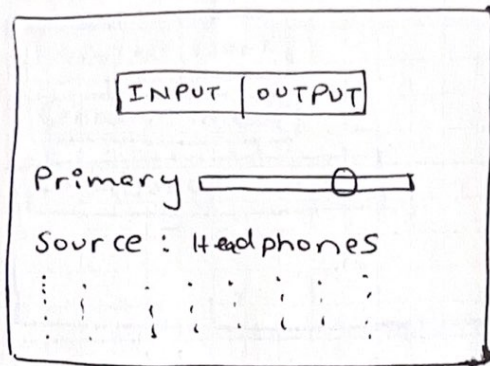 INPUT OUTPUT
Primary
Source : Headphones